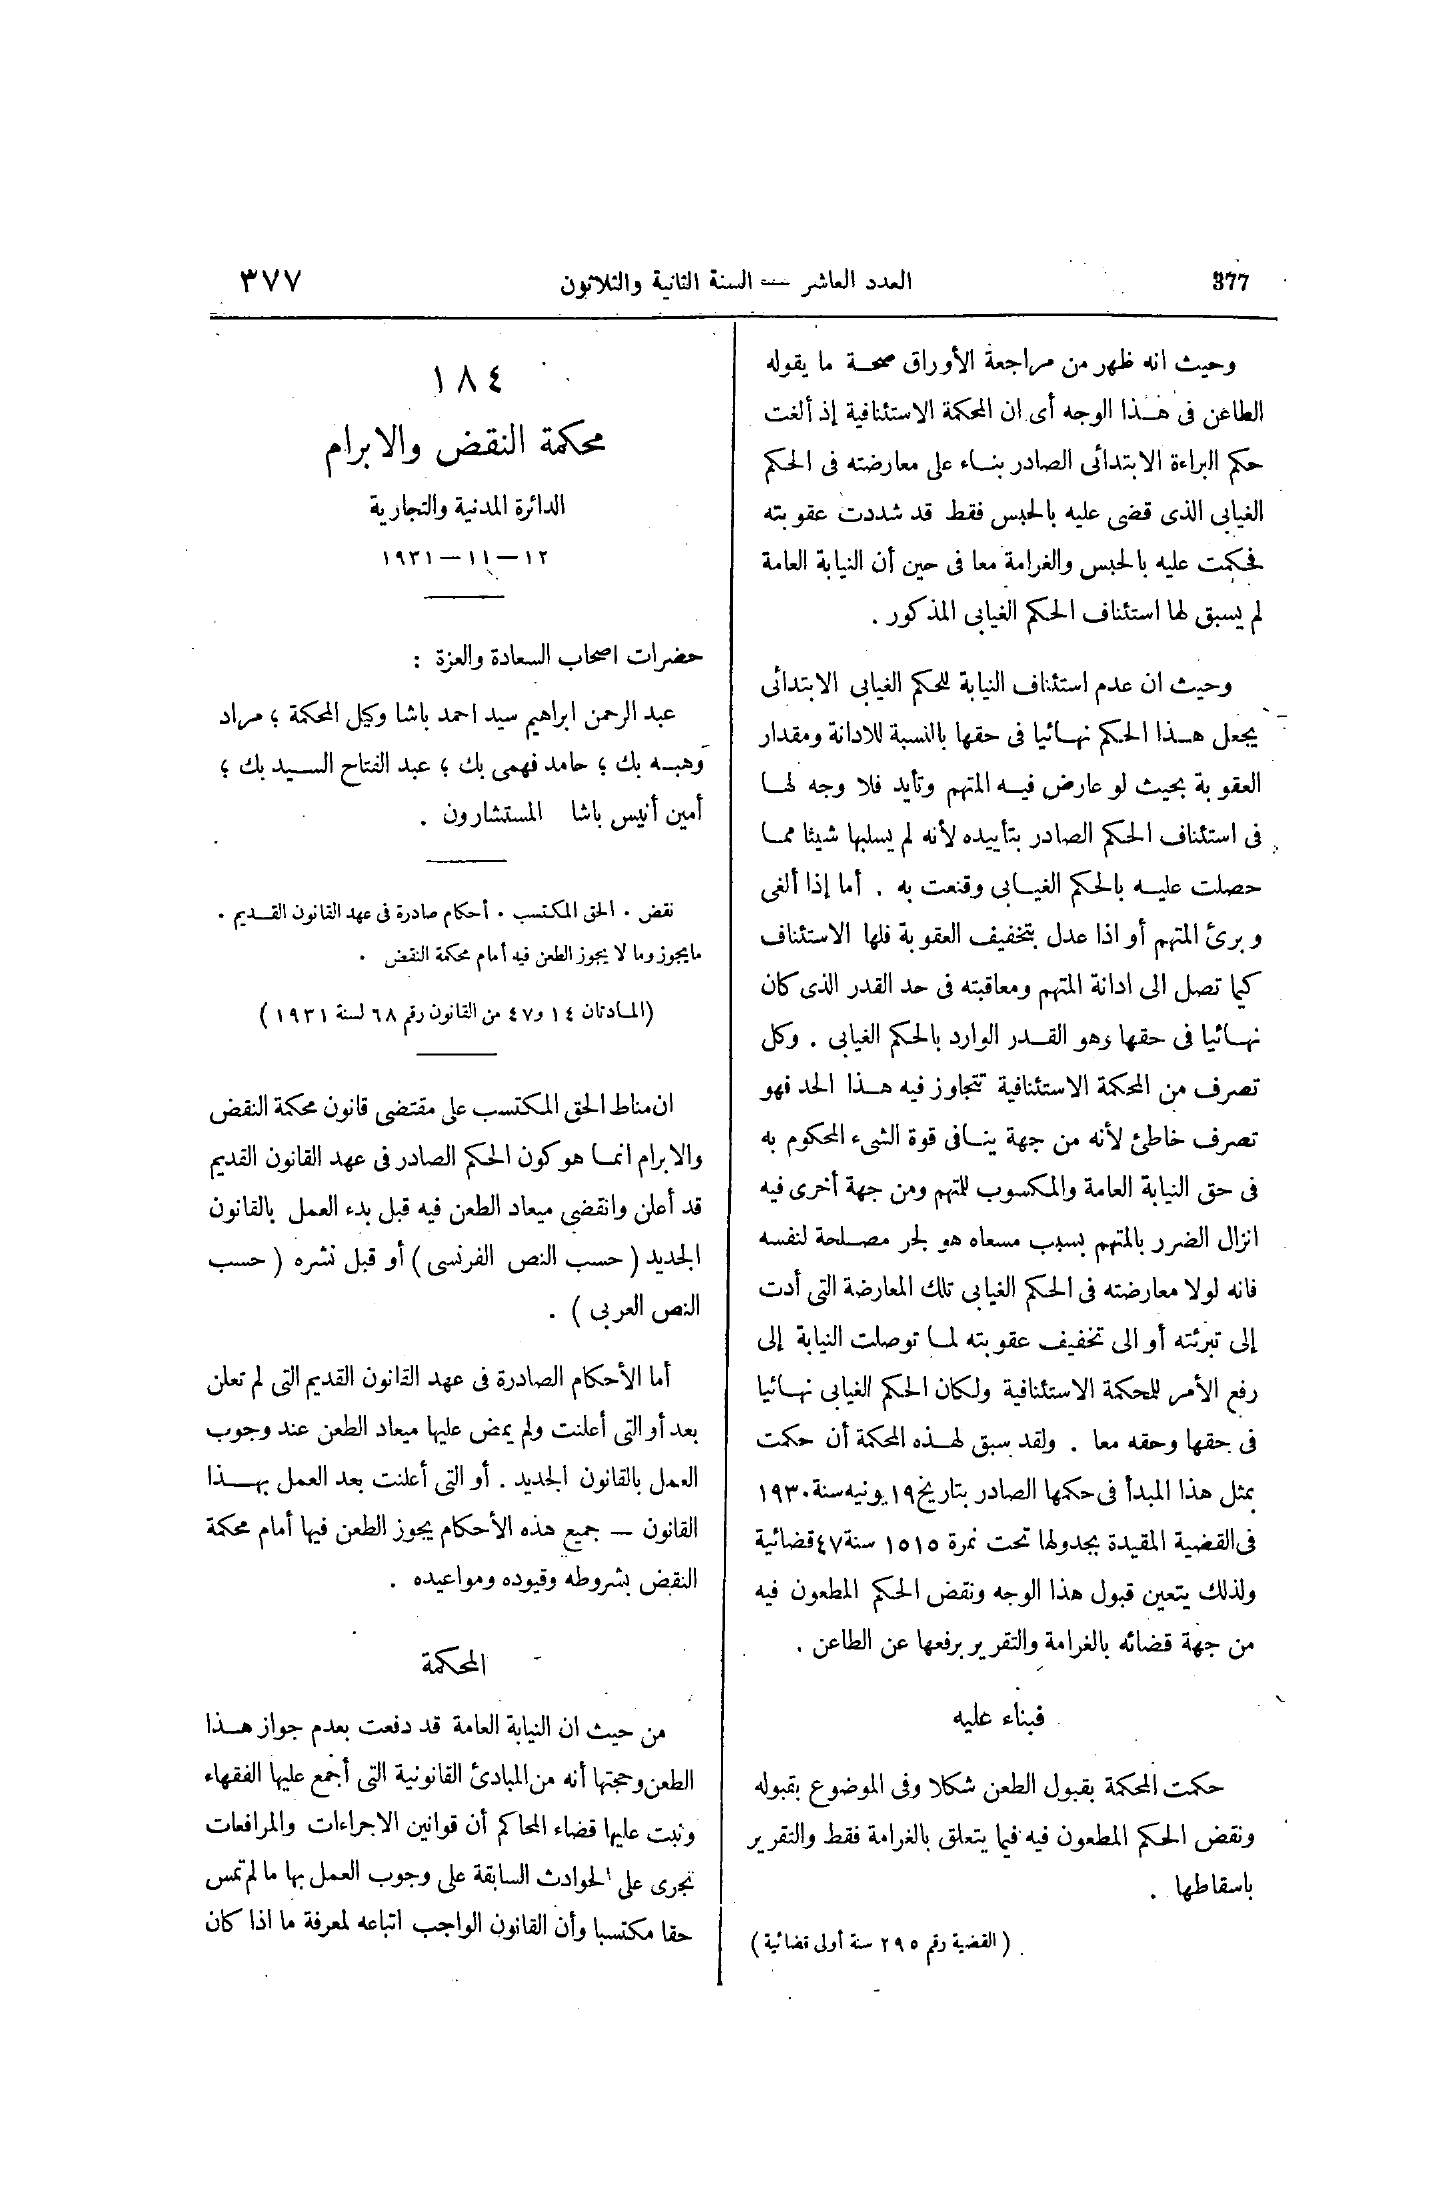 377
العدد العاشر — السنة الثانية والثلاثون
٣٧٧
وحيث انه ظهر من مراجعة الأوراق صحة ما يقوله
الطاعن فى هذا الوجه أى ان المحكمة الاستئنافية إذ ألغت
حكم البراءة الابتدائى الصادر بناء على معارضته فى الحكم
الغيابى الذى قضى عليه بالحبس فقط قد شددت عقوبته
فحكمت عليه بالحبس والغرامة معا فى حين أن النيابة العامة
لم يسبق لها استئناف الحكم الغيابى المذكور .
وحيث ان عدم استئناف النيابة للحكم الغيابى الابتدائى
يجعل هذا الحكم نهائيا فى حقها بالنسبة للادانة ومقدار
العقوبة بحيث لو عارض فيه المتهم وتأيد فلا وجه لها
فى استئناف الحكم الصادر بتأييده لأنه لم يسلبها شيئا مما
حصلت عليه بالحكم الغيابى وقنعت به . أما إذا ألغى
وبرئ المتهم أو اذا عدل بتخفيف العقوبة فلها الاستئناف
كيما تصل الى ادانة المتهم ومعاقبته فى حد القدر الذى كان
نهائيا فى حقها وهو القدر الوارد بالحكم الغيابى . وكل
تصرف من المحكمة الاستئنافية تتجاوز فيه هذا الحد فهو
تصرف خاطئ لأنه من جهة ينافى قوة الشىء المحكوم به
فى حق النيابة العامة والمكسوب للمتهم ومن جهة أخرى فيه
انزال الضرر بالمتهم بسبب مسعاه هو لجر مصلحة لنفسه
فانه لولا معارضته فى الحكم الغيابى تلك المعارضة التى أدت
إلى تبرئته أو الى تخفيف عقوبته لما توصلت النيابة إلى
رفع الأمر للمحكمة الاستئنافية ولكان الحكم الغيابى نهائيا
فى حقها وحقه معا . ولقد سبق لهذه المحكمة أن حكمت
بمثل هذا المبدأ فى حكمها الصادر بتاريخ ١٩ يونيه سنة ١٩٣٠
فى القضية المقيدة بجدولها تحت نمرة ١٥١٥ سنة ٤٧ قضائية
ولذلك يتعين قبول هذا الوجه ونقض الحكم المطعون فيه
من جهة قضائه بالغرامة والتقرير برفعها عن الطاعن .
فبناء عليه
حكمت المحكمة بقبول الطعن شكلا وفى الموضوع بقبوله
ونقض الحكم المطعون فيه فيما يتعلق بالغرامة فقط والتقرير
باسقاطها .
( القضية رقم ٢٩٥ سنة أولى قضائية )
١٨٤
محكمة النقض والابرام
الدائرة المدنية والتجارية
١٢ — ١١ — ١٩٣١
حضرات اصحاب السعادة والعزة :
عبد الرحمن ابراهيم سيد احمد باشا وكيل المحكمة ؛ مراد
وهبه بك ؛ حامد فهمى بك ؛ عبد الفتاح السيد بك ؛
أمين أنيس باشا المستشارون .
نقض . الحق المكتسب . أحكام صادرة فى عهد القانون القديم .
مايجوز وما لا يجوز الطعن فيه أمام محكمة النقض .
(المادتان ١٤ و٤٧ من القانون رقم ٦٨ لسنة ١٩٣١)
ان مناط الحق المكتسب على مقتضى قانون محكمة النقض
والابرام انما هو كون الحكم الصادر فى عهد القانون القديم
قد أعلن وانقضى ميعاد الطعن فيه قبل بدء العمل بالقانون
الجديد ( حسب النص الفرنسى ) أو قبل نشره ( حسب
النص العربى ) .
أما الأحكام الصادرة فى عهد القانون القديم التى لم تعلن
بعد أو التى أعلنت ولم يمض عليها ميعاد الطعن عند وجوب
العمل بالقانون الجديد . أو التى أعلنت بعد العمل بهذا
القانون — جميع هذه الأحكام يجوز الطعن فيها أمام محكمة
النقض بشروطه وقيوده ومواعيده .
المحكمة
من حيث ان النيابة العامة قد دفعت بعدم جواز هذا
الطعن وحجتها أنه من المبادئ القانونية التى أجمع عليها الفقهاء
وثبت عليها قضاء المحاكم أن قوانين الاجراءات والمرافعات
تجرى على الحوادث السابقة على وجوب العمل بها ما لم تمس
حقا مكتسبا وأن القانون الواجب اتباعه لمعرفة ما اذا كان